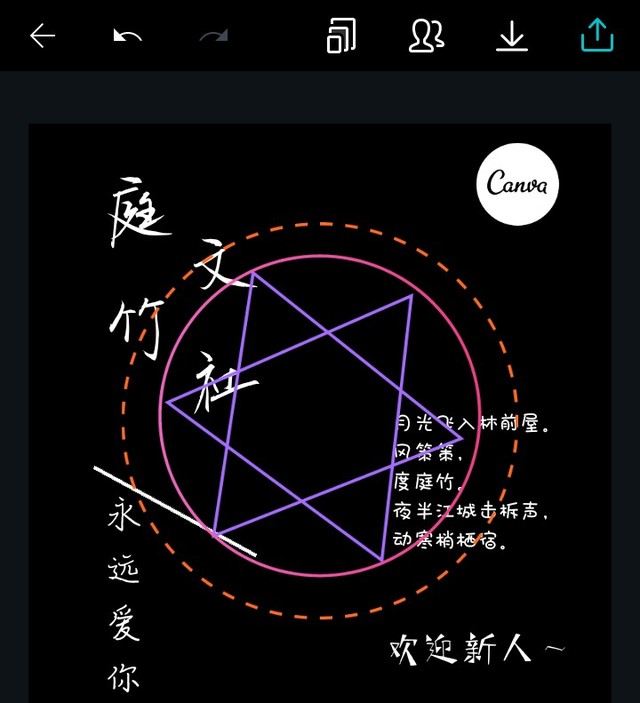 Canva
庭竹
文社
月光飞入林前屋。
风策策，
度庭竹。
夜半江城击柝声，
动寒梢栖宿。
永远爱你
欢迎新人～